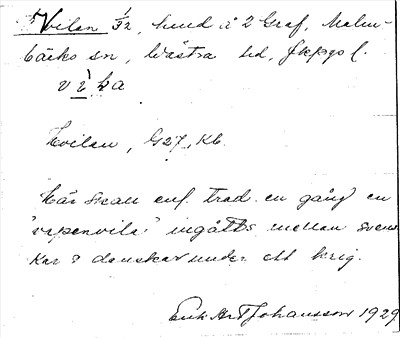 Vilan 1/32, hmd å 2 Graf, Malm-
bäcks sn, Västra hd, Jkpgs l.
vi̱la
Hvilan, G27, Kb.
Här skall enl. trad. en gång en
"vapenvila" ingåtts mellan svens
kar o danskar under ett krig.
Erik Art Johansson 1929